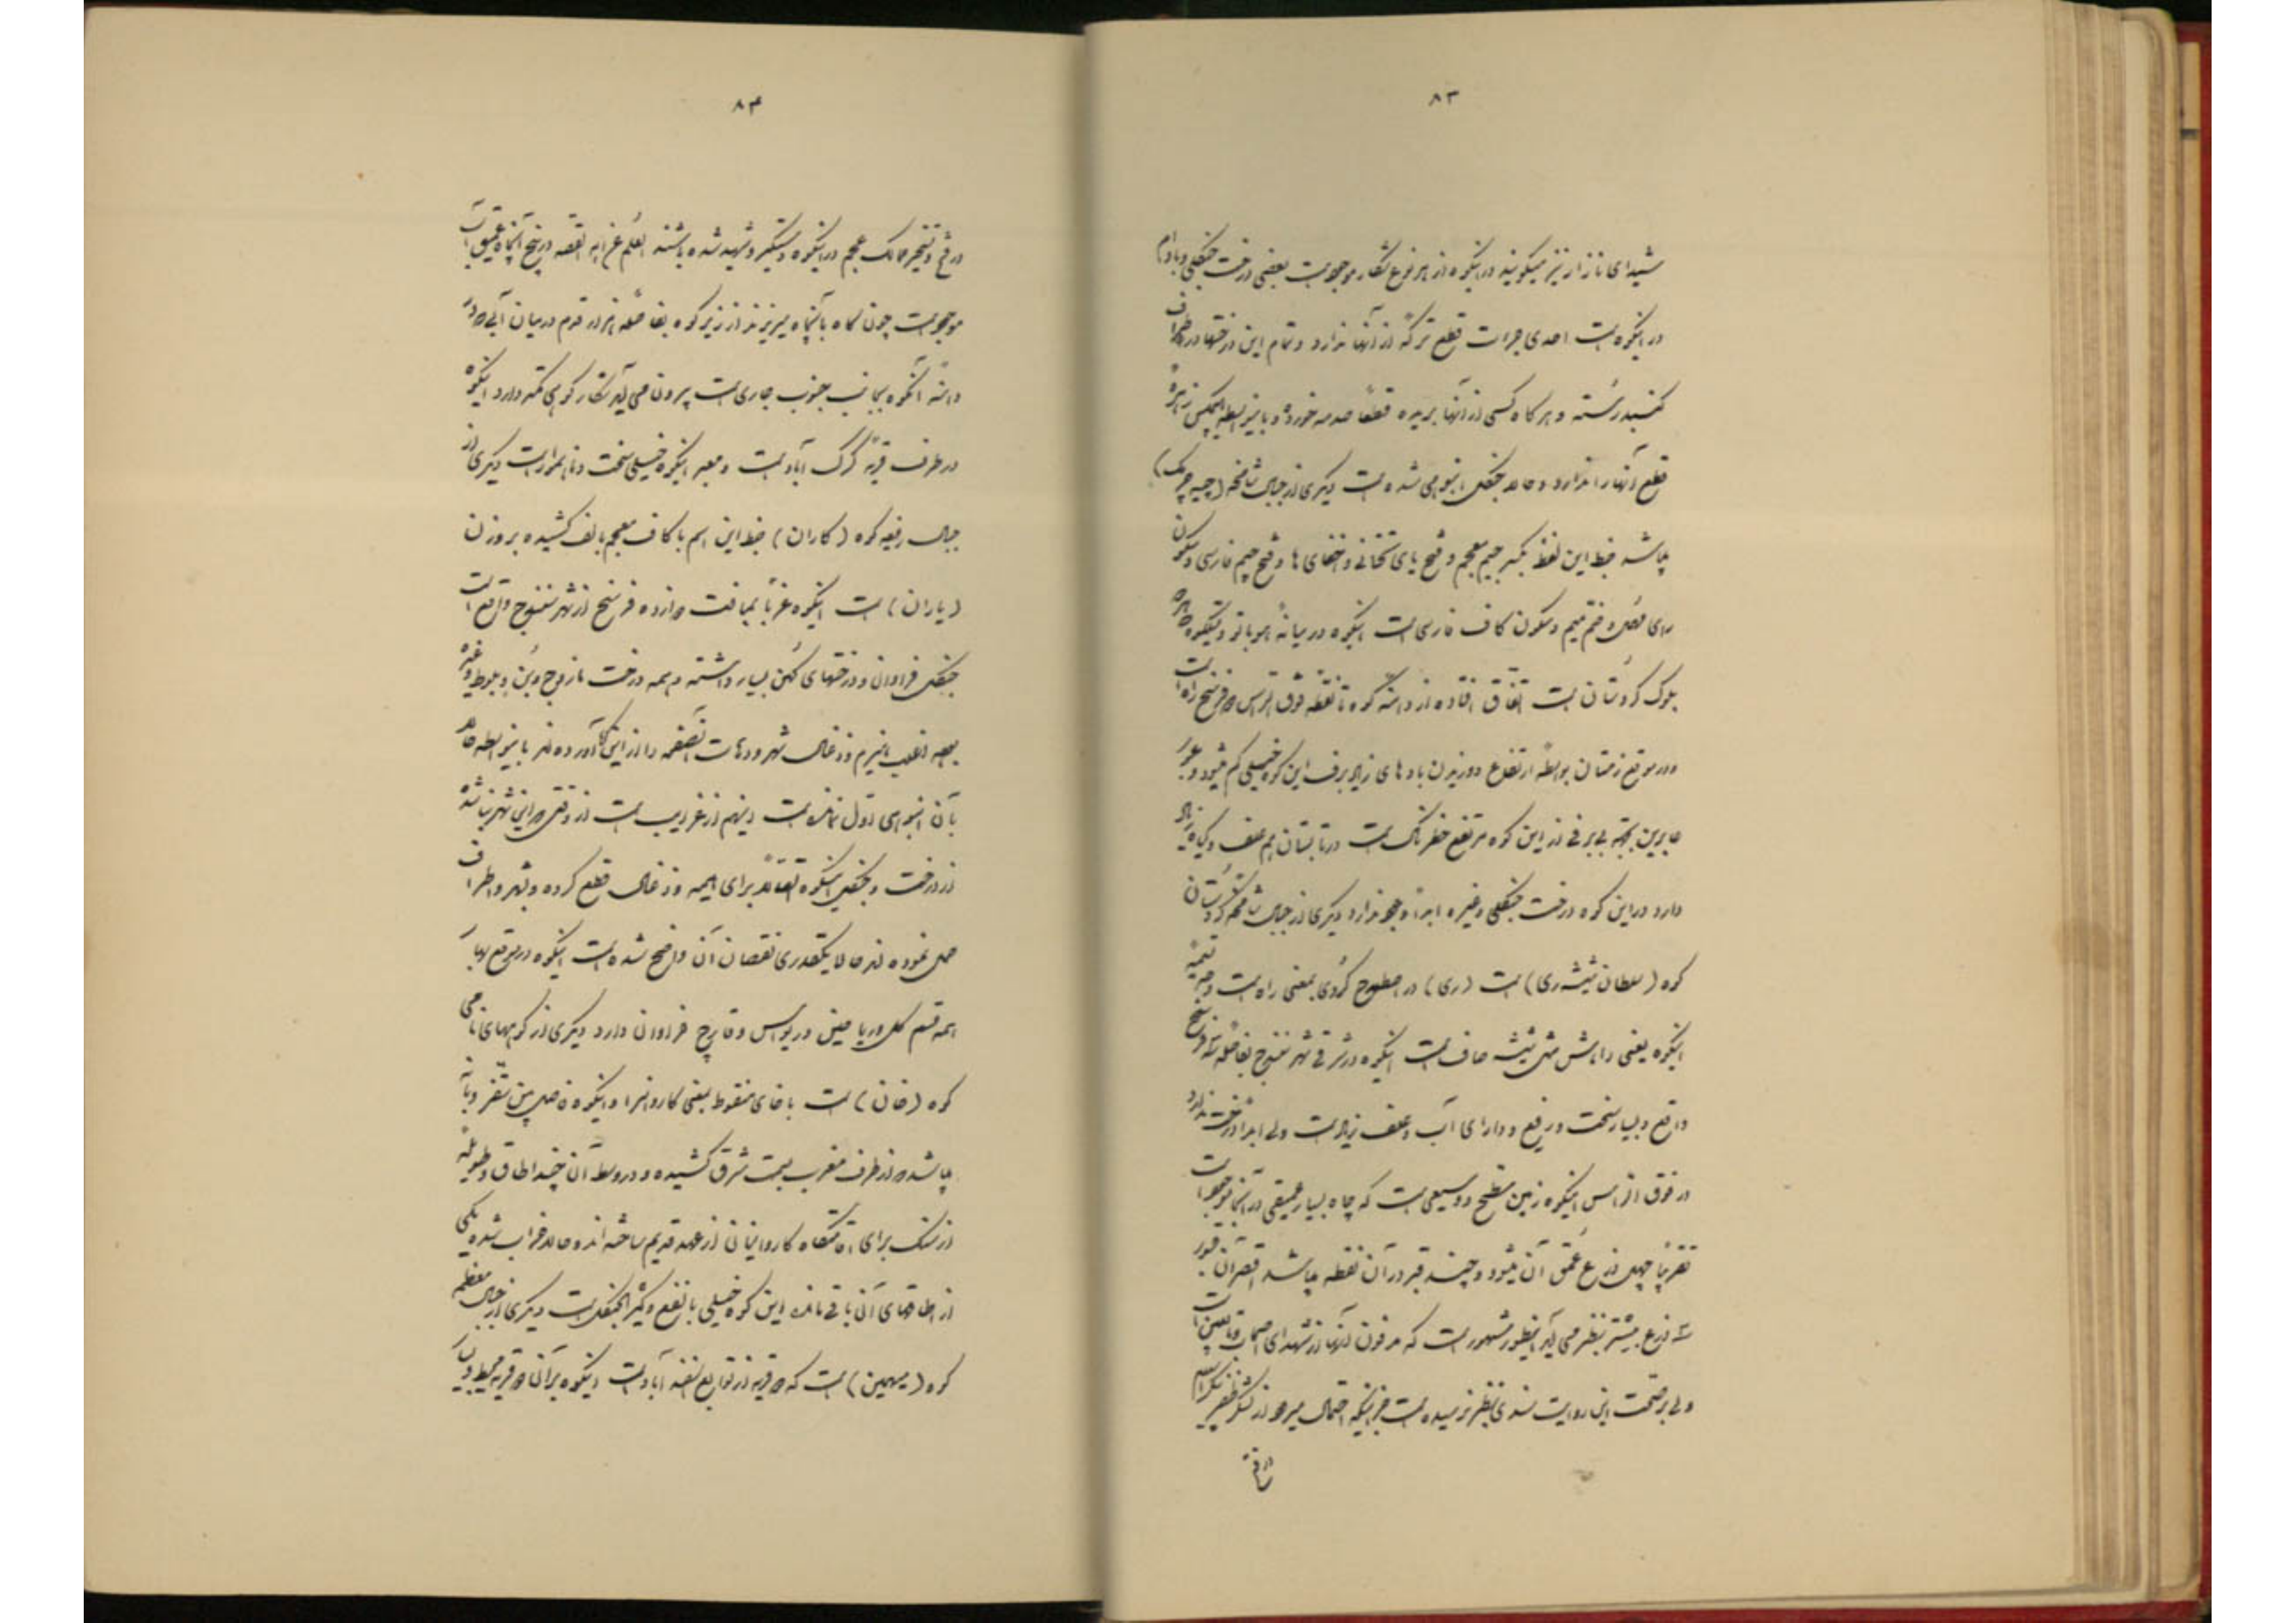 ۸۳
شیدای نازار نیز میگویند در اینکوه از هر نوع شکار موجود است بعضی درخت جنگلی و بادام
در اینکوه است احدی جرات قطع ترکهٔ از آنها ندارد و تمام این درختها در اطراف
گنبد رسته و هر گاه کسی از آنها بریده قطعاً صدمه خورده و باینواسطه هیچکس زهرهٔ
قطع آنها را ندارد و حالا جنگل انبوهی شده است دیگری از جبال شامخه (جیه چرمک)
میباشد ضبط این لفظ بکسر جیم معجم و فتح یای تحتانی و اخفای ها و فتح چیم فارسی و سکون
رای مهمله و فتح میم و سکون کاف فارسی است اینکوه در میانهٔ هوباتو و تیلکوه
بلوک کردستان است اتفاق افتاده از دامنه کوه تا نقطه فوق الراس دو فرسخ راه است
در موقع زمستان بواسطهٔ ارتفاع و وزیدن بادهای زیاد برف این کوه خیلی کم میشود و عبور
عابرین بجهة بی برفی از این کوه مرتفع خطرناک است در تابستان هم علف و گیاه زیاد
دارد در این کوه درخت جنگلی و غیره ابداً وجود ندارد دیگری از جبال شامخه کردستان
کوه (سلطان شیشه‌ری) است (ری) در اصطلاح کُردی بمعنی راه است وجه تسمیهٔ
اینکوه یعنی راهش مثل شیشه صاف است اینکوه در شرقی شهر سنندج بفاصله سه فرسخ
واقع و بسیار سخت و رفیع و دارای آب و علف زیاد است ولی ابداً درخت ندارد
در فوق الراس اینکوه زمین مسطح و وسیعی است که چاه بسیار عمیقی در آنجا موجود است
تقریباً چهل ذرع عمق آن میشود و چند قبر در آن نقطه میباشد اقصر آن قبور
سه ذرع بیشتر بنظر می آید اینطور مشهور است که مدفون آنها از شهدای اصحاب و تابعین است
ولی بر صحت این روایت سندی بنظر نرسیده است جز اینکه احتمال میرود از لشکر ظفر
در فتح
۸۴
در فتح و تسخیر ممالک عجم در اینکوه دستگیر و شهید شده باشند العلم عند الله القصه در بیخ آنچاه عمیق آب
موجود است چون کاه بآنچاه میریزند از زیر کوه بفاصلهٔ هزار قدم در میان آبی که در
دامنهٔ آنکوه بجانب جنوب جاری است بیرون می آید شکار کوهی کمتر دارد اینکوه
در طرف قریهٔ گرگ آباد است و معبر اینکوه خیلی سخت و ناهموار است دیگری از
جبال رفیعه کوه (کاران) ضبط این اسم با کاف معجم بالف کشیده بر وزن
(یاران) است اینکوه غرباً بمسافت دوازده فرسخ از شهر سنندج واقع است
جنگل فراوان و درختهای کهن بسیار داشته و همه درخت مازوج و بن و بلوط و غیره
بوده اغلب هیزم و ذغال شهر و دهات آنصفحه را از این کوه آورده اند باینواسطه حالا
بآن انبوهی اول نمانده است اینهم از غرایب است از وقتی که این شهر بنا شده
از درخت و جنگل اینکوه اتصالاً برای هیمه و ذغال قطع کرده و بشهر و اطراف
حمل نموده اند حالا یکقدری نقصان آن واضح شده است اینکوه در موقع بهار
همه قسم گل و ریاحین و ریواس و قارچ فراوان دارد دیگری از کوههای نامی
کوه (خان) است با خای منقوط بمعنی کاروانسرا و اینکوه فاصل بین سقز و بانه
میباشد که از طرف مغرب بسمت شرق کشیده و در وسط آن چند اطاق و طویله
از سنگ برای اقامتگاه کاروانیان از عهد قدیم ساخته اند و حالا خراب شده یکی
از اطاقهای آن باقی مانده این کوه خیلی با نفع و کثیر الجنگل است دیگری از جبال معظم
کوه (میهمین) است که دو قریه از توابع اسفند آباد است اینکوه بر آن دو قریه محیط و